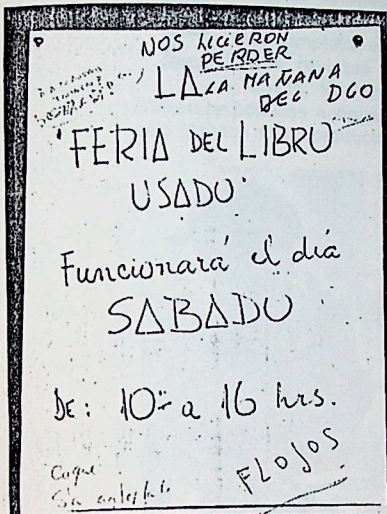 NOS HICIERON
PERDER
LA LA MAÑANA
DEL DGO
"FERIA DEL LIBRO
USADO"
Funcionará el día
SABADO
DE: 10:- a 16 hrs.
FLOJOS